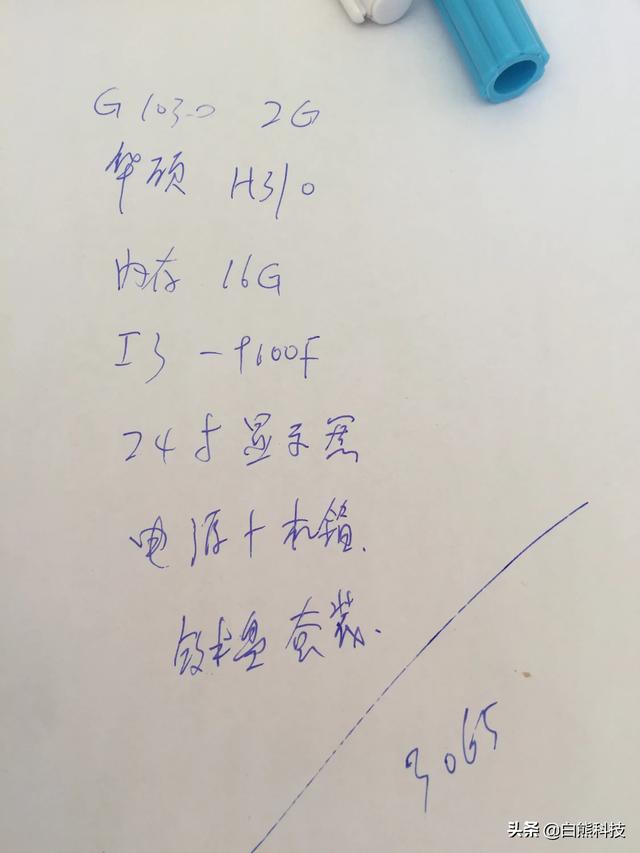 G 1030 2G
华硕 H310
内存 16G
I3-9100F
24寸显示器
电源+机箱.
键盘套装.
3065
头条 @白熊科技